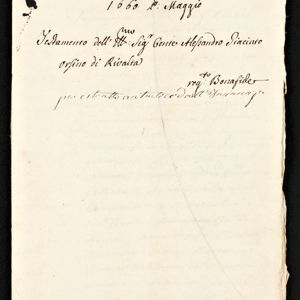 1660 P.º Maggio
Testamento dell' Ill.mo Sig.r Conte Alessandro Giacinto
orsino di Rivalta
rog.to Bonafide
per estratto autentico dall'